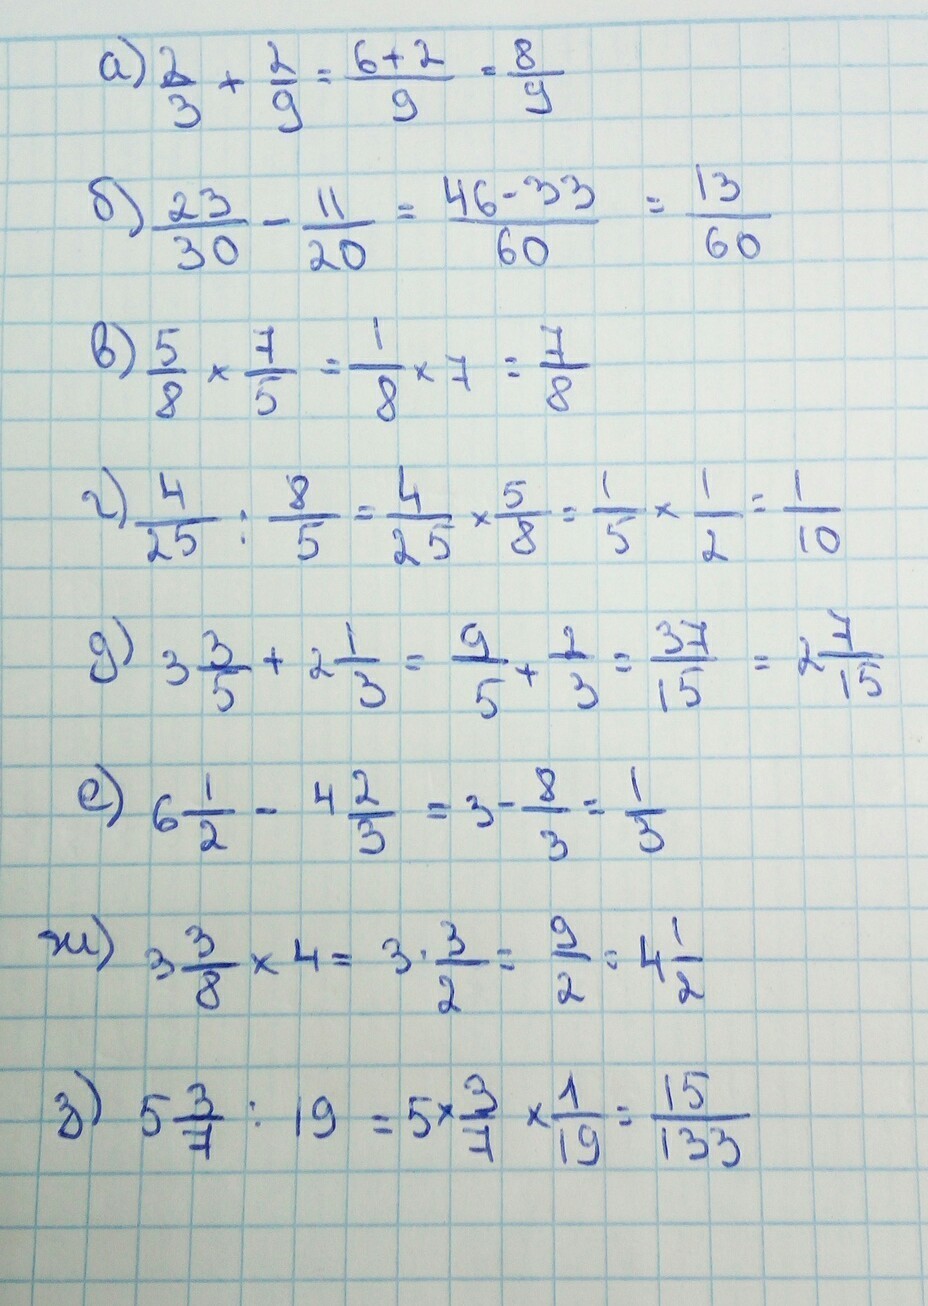 а) 2/3 + 2/9 = (6+2)/9 = 8/9
б) 23/30 - 11/20 = (46-33)/60 = 13/60
в) 5/8 × 7/5 = 1/8 × 7 = 7/8
г) 4/25 : 8/5 = 4/25 × 5/8 = 1/5 × 1/2 = 1/10
д) 3 3/5 + 2 1/3 = 9/5 + 2/3 = 37/15 = 2 7/15
е) 6 1/2 - 4 2/3 = 3 - 8/3 = 1/3
ж) 3 3/8 × 4 = 3 · 3/2 = 9/2 = 4 1/2
з) 5 3/7 : 19 = 5 × 3/7 × 1/19 = 15/133